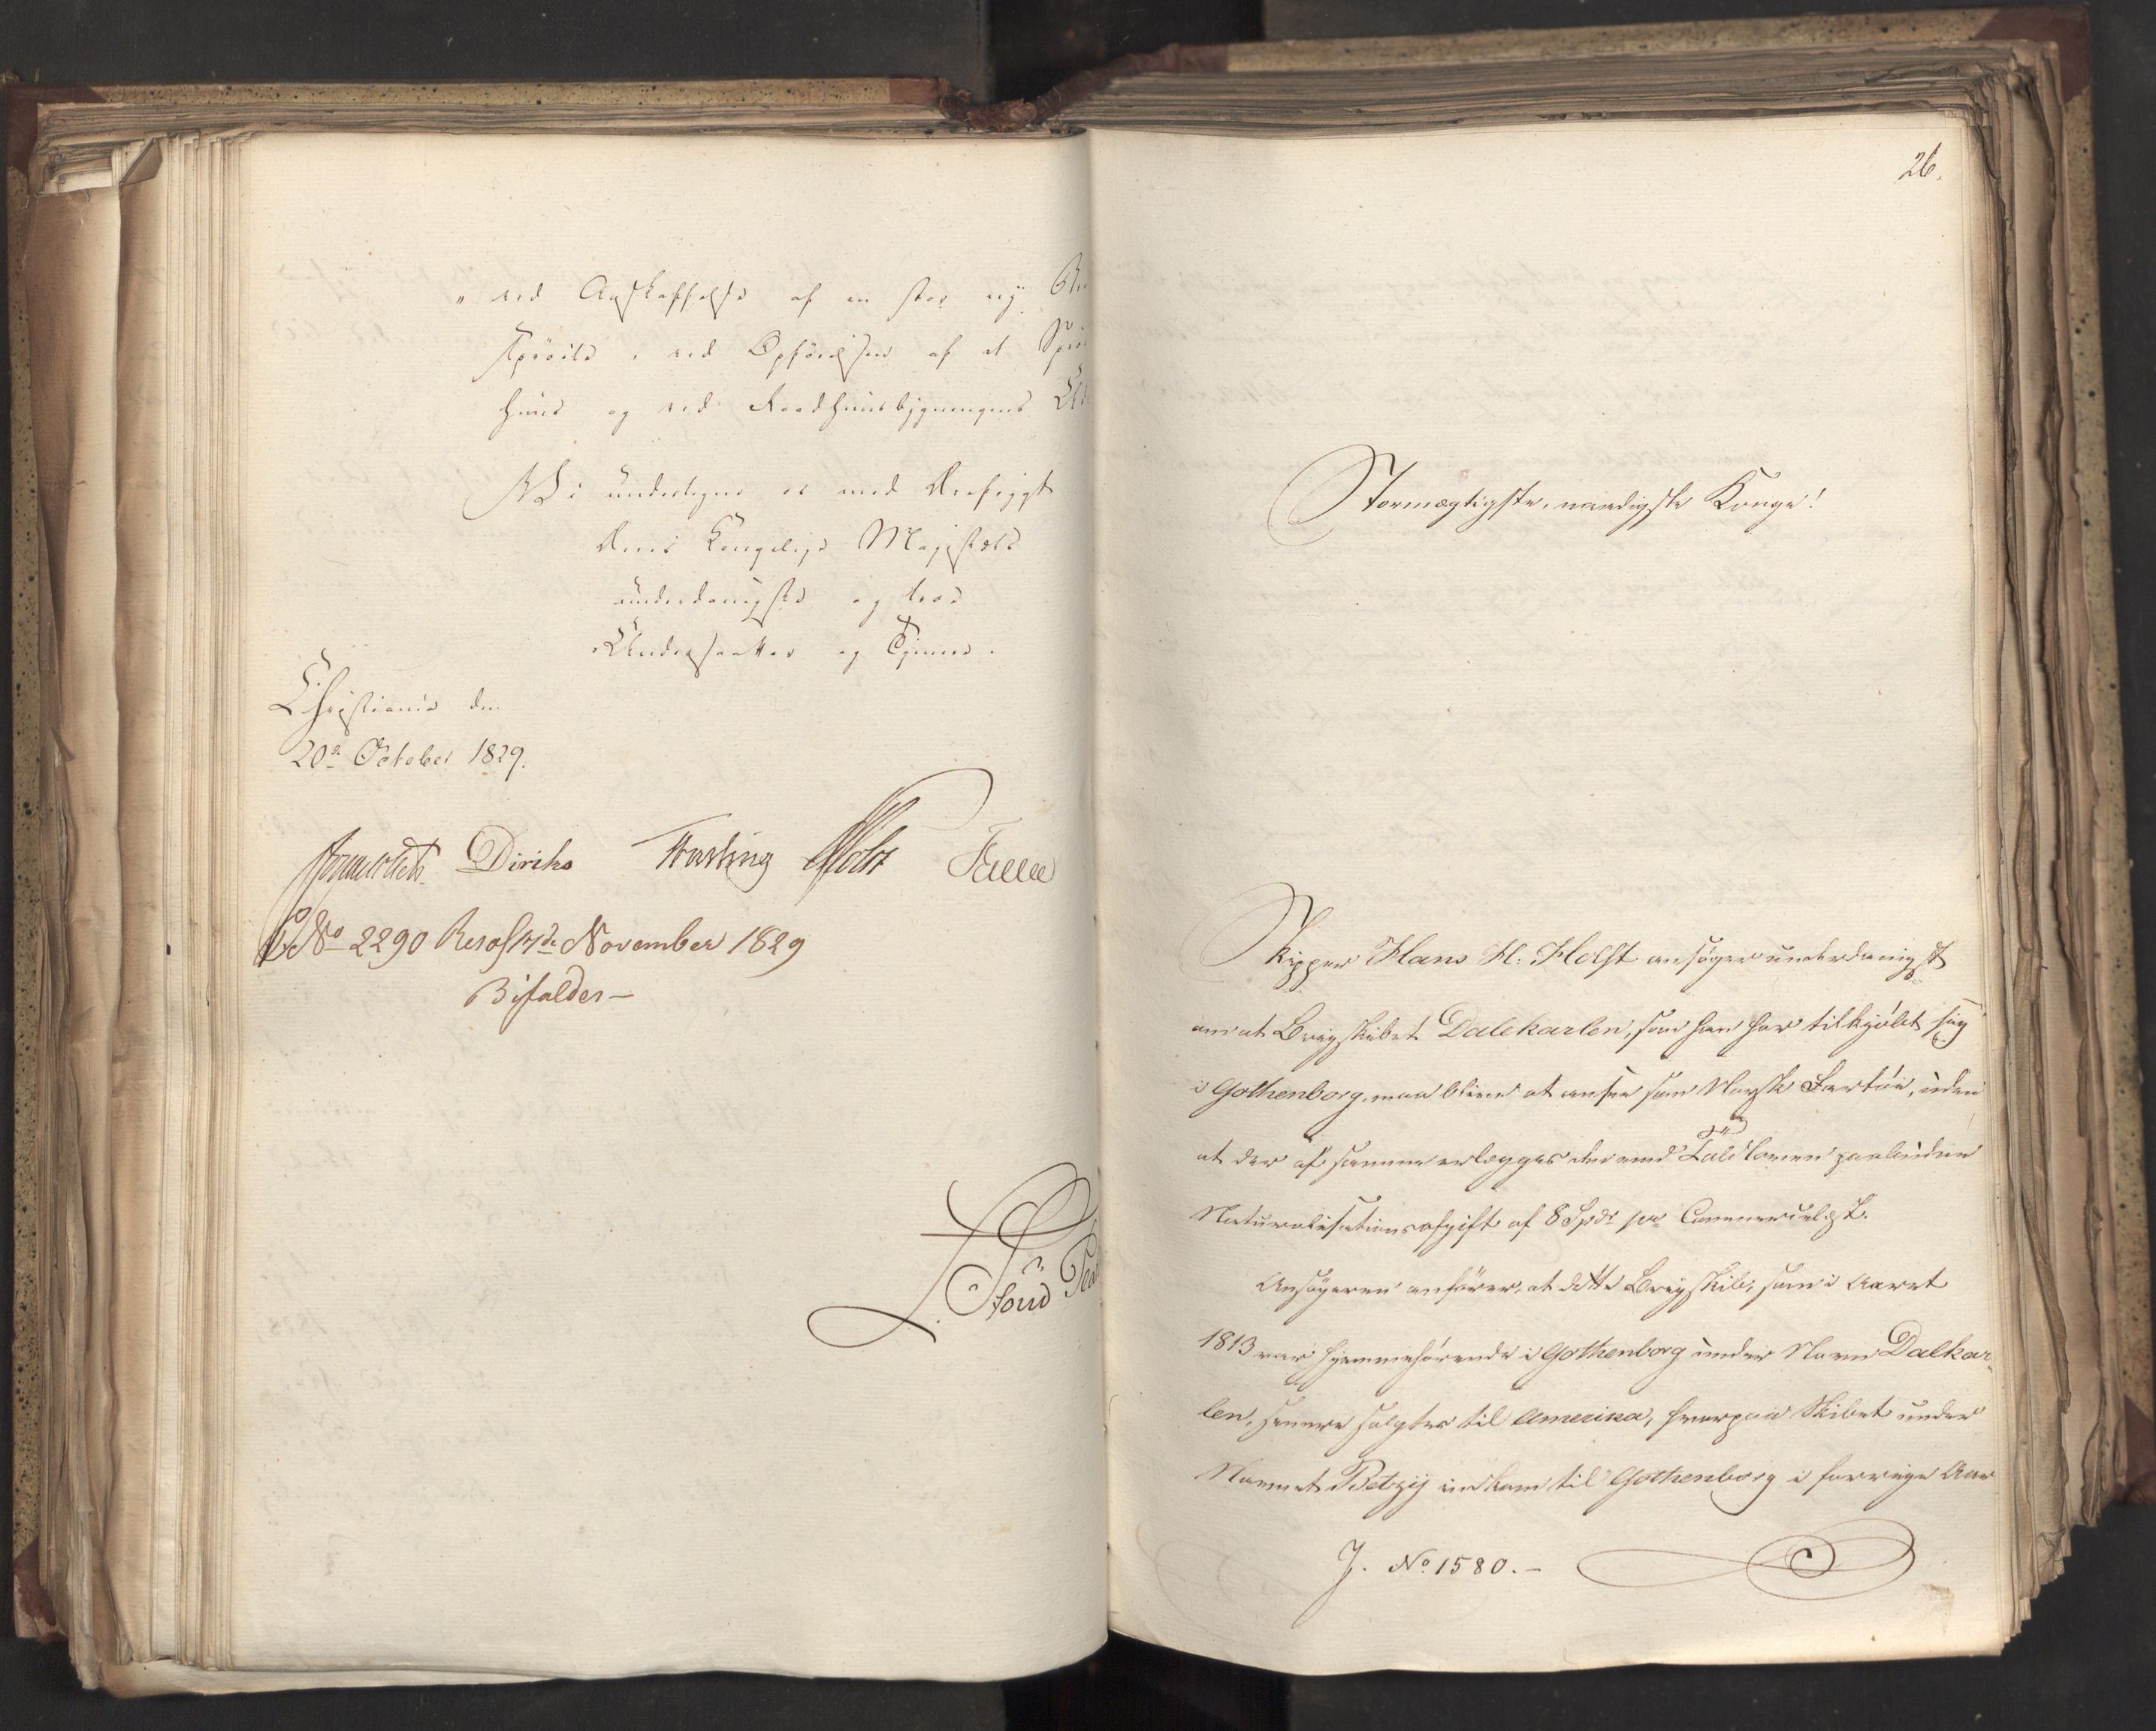 " ved Anskaffelse af en stor ny
Sprøite, ved Opførelsen af et
huus og ved Raadhuusbygningens
Vi undertegne os med Drefrygt
Deres Kongelige Majestæts
underdanigste og troe
Undersaatter og Tjenere.
Christiania den
20de October 1829.
Diriks Fasting Holst
No 2290 Resol 17de November 1829
Bifaldes –
26.
Stormægtigste, naadigste Konge!
Skipper Hans H. Holst ansøger underdanigst
om at Brigskibet Dalekarlen, som han har tilkjøbt sig
i Gothenborg, maa blive at ansee som Norsk Fartøi, uden
at der af samme erlægges den ved Toldloven paabudne
Naturalisationsafgift af 8 Spdr pr Commercelæst.
Ansøgeren anfører, at dette Brigskib, som i Aaret
1813 var hjemmehørende i Gothenborg under Navn Dalkar-
len, senere solgtes til Amerika, hvorpaa Skibet under
Navnet Betzij indkom til Gothenborg i forrige Aar
J. No 1580. –